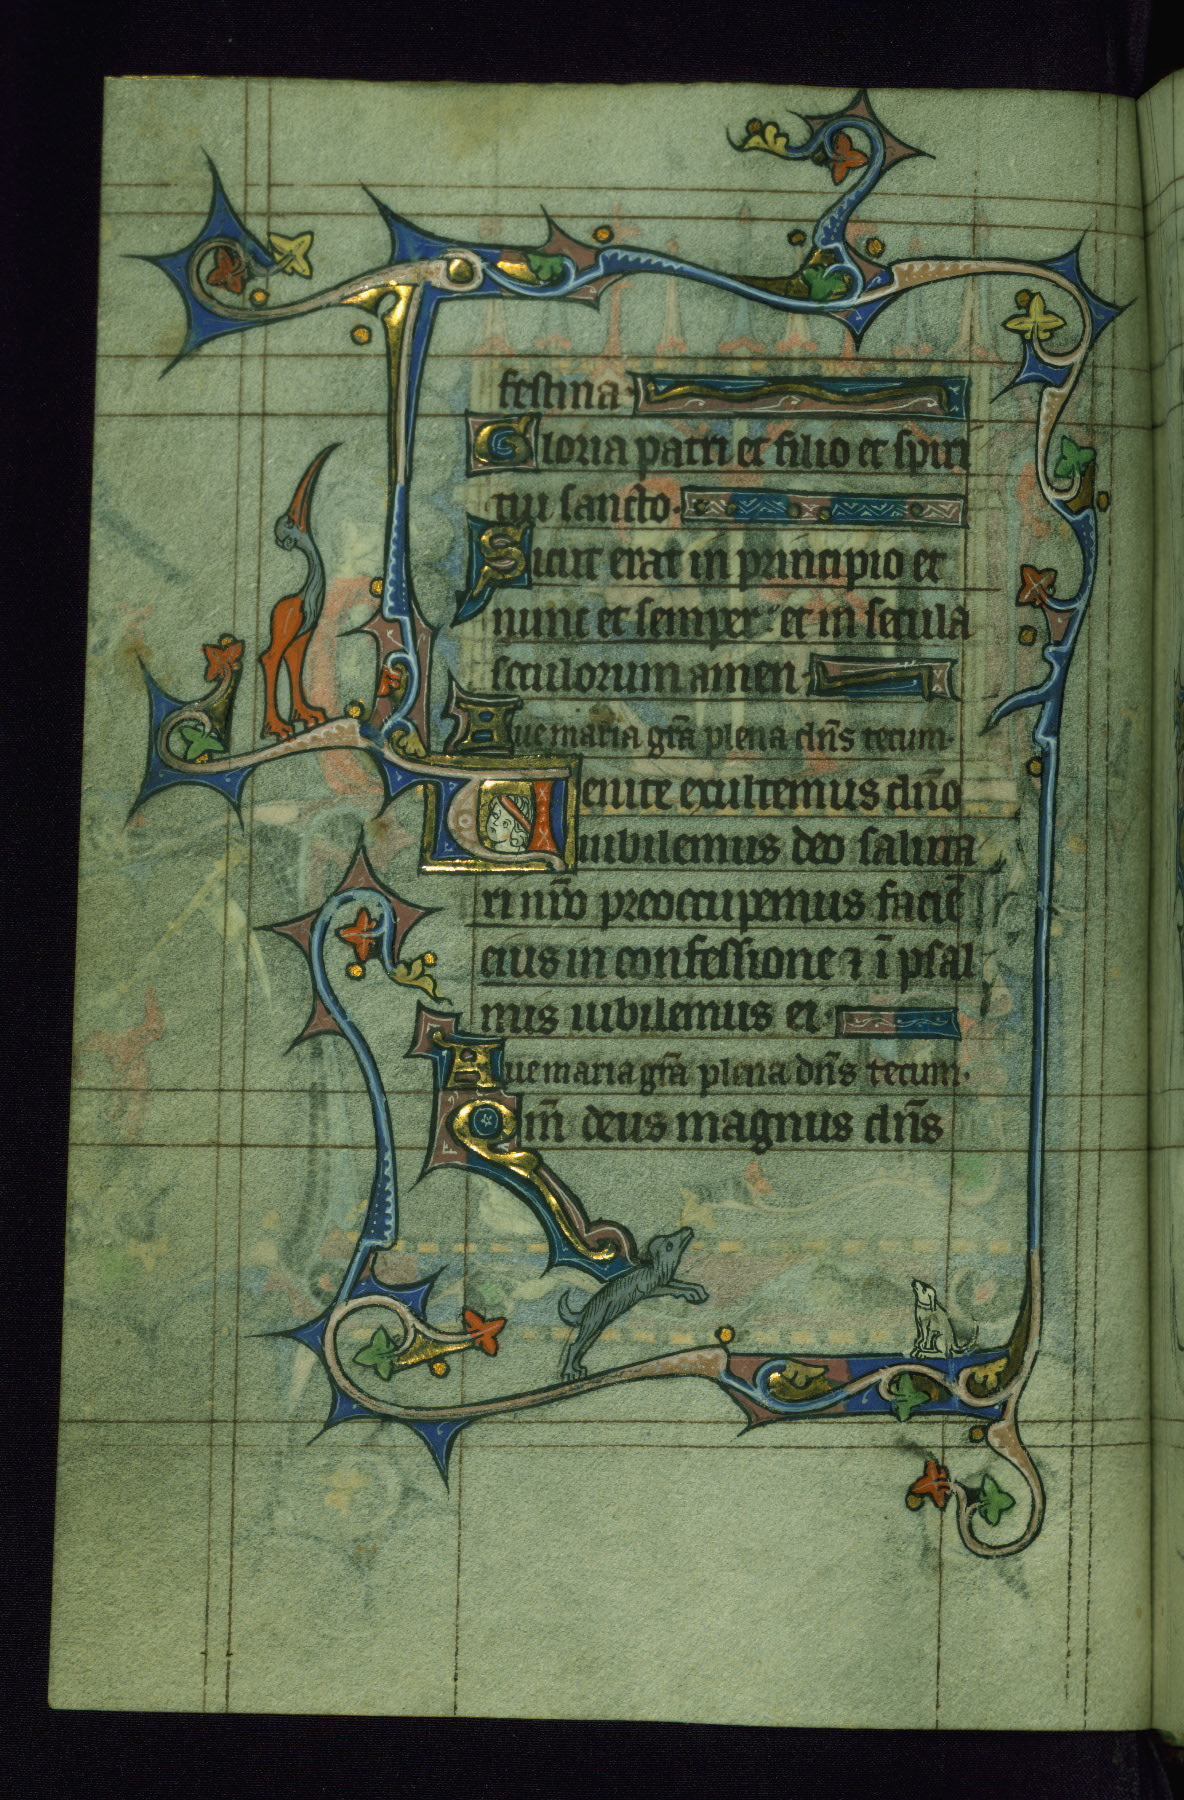 festina·
Gloria patri et filio et spiri
tui sancto·
Sicut erat in principio et
nunc et semper· et in secula
seculorum amen·
Aue maria gr̄a plena dn̄s tecum·
Uenite exultemus dn̄o
iubilemus deo saluta
ri nr̄o preoccupemus faciē
eius in confessione ⁊ ī psal
mis iubilemus ei·
Aue maria gr̄a plena dn̄s tecum·
Qm̄ deus magnus dn̄s